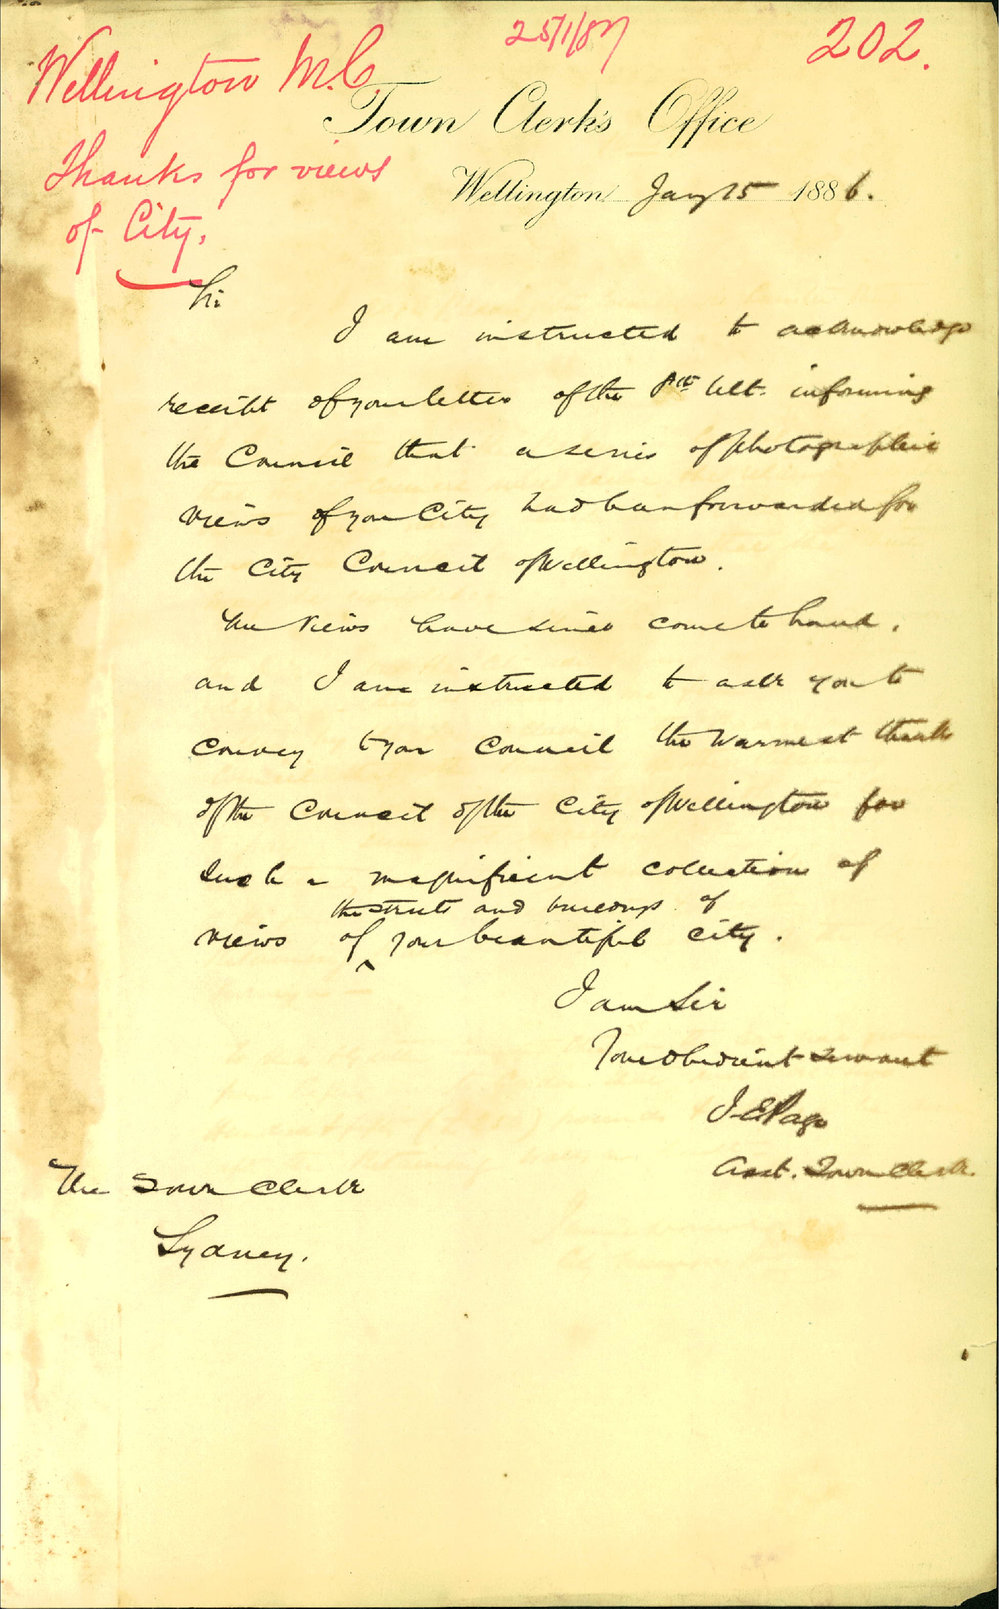 25/1/87
202.
Wellington M.C.
Thanks for views
of City.
Town Clerk's Office
Wellington Jany 15 1886.
Sir
I am instructed to acknowledge
receipt of your letter of the 8th Ult. informing
the Council that a series of photographic
views of your City had been forwarded for
the City Council of Wellington.
The views have since come to hand,
and I am instructed to ask you to
convey to your Council the warmest thanks
of the Council of the City of Wellington for
such a magnificent collection of
the streets and buildings of
views of ^ your beautiful city.
I am Sir
Your obedient servant
J. E. Page
Asst. Town Clerk.
The Town Clerk
Sydney.